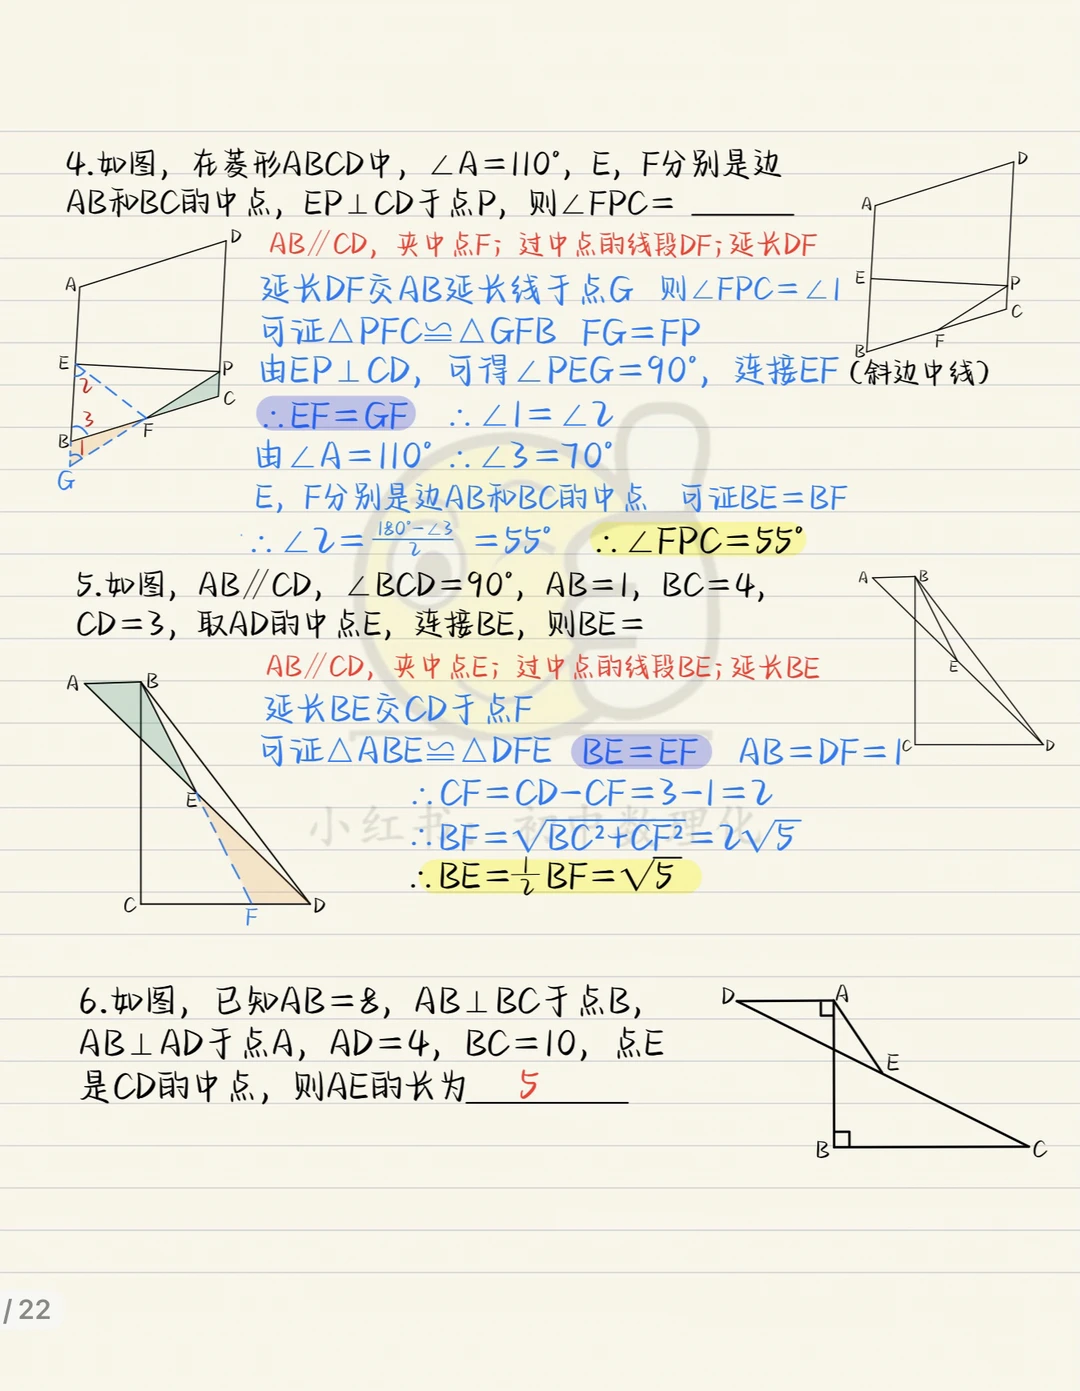 4.如图，在菱形ABCD中，∠A=110°，E，F分别是边
AB和BC的中点，EP⊥CD于点P，则∠FPC= ______
AB∥CD，夹中点F；过中点的线段DF；延长DF
延长DF交AB延长线于点G 则∠FPC=∠1
可证△PFC≌△GFB FG=FP
由EP⊥CD，可得∠PEG=90°，连接EF(斜边中线)
∴EF=GF ∴∠1=∠2
由∠A=110° ∴∠3=70°
E，F分别是边AB和BC的中点 可证BE=BF
∴∠2=(180°-∠3)/2=55° ∴∠FPC=55°
A
D
E
P
C
B
F
G
2
3
1
A
D
E
P
C
B
F
5.如图，AB∥CD，∠BCD=90°，AB=1，BC=4，
CD=3，取AD的中点E，连接BE，则BE=
AB∥CD，夹中点E；过中点的线段BE；延长BE
延长BE交CD于点F
可证△ABE≌△DFE BE=EF AB=DF=1
∴CF=CD-CF=3-1=2
∴BF=√BC²+CF²=2√5
∴BE=1/2BF=√5
小红书：初中数理化
A
B
E
C
F
D
A
B
E
C
D
6.如图，已知AB=8，AB⊥BC于点B，
AB⊥AD于点A，AD=4，BC=10，点E
是CD的中点，则AE的长为 5
D
A
E
B
C
/ 22